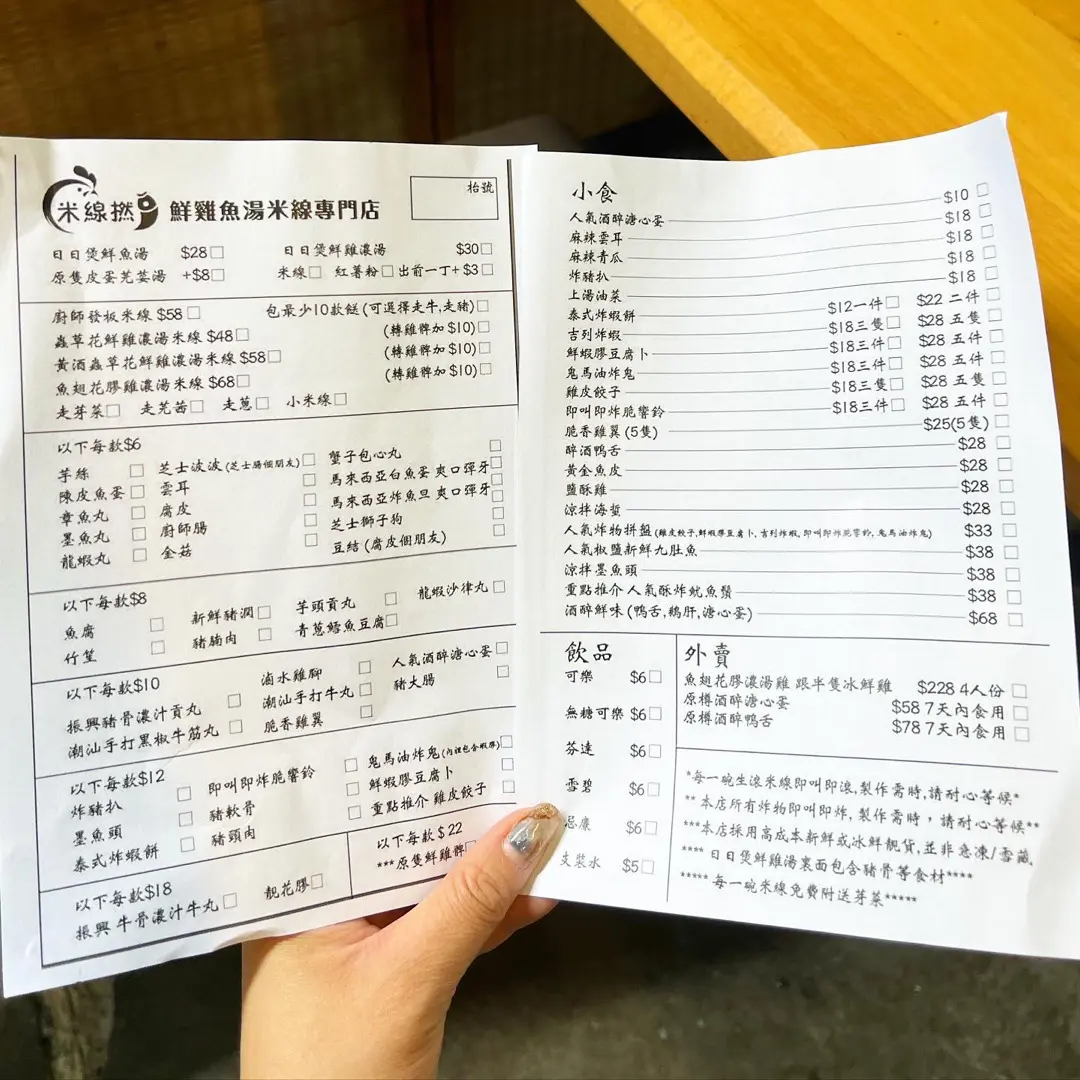 米線撚
鮮雞魚湯米線專門店
枱號
日日煲鮮魚湯 $28 日日煲鮮雞濃湯 $30
原隻皮蛋芫荽湯 +$8 米線 紅薯粉 出前一丁+$3
廚師發板米線 $58 包最少10款餸(可選擇走牛,走豬)
蟲草花鮮雞濃湯米線 $48 (轉雞髀加 $10)
黃酒蟲草花鮮雞濃湯米線 $58 (轉雞髀加 $10)
魚翅花膠雞濃湯米線 $68 (轉雞髀加 $10)
走芽菜 走芫茜 走蔥 小米線
以下每款$6
芋絲 芝士波波(芝士腸個朋友) 蟹子包心丸
陳皮魚蛋 雲耳 馬來西亞白魚蛋 爽口彈牙
章魚丸 腐皮 馬來西亞炸魚旦 爽口彈牙
墨魚丸 廚師腸 芝士獅子狗
龍蝦丸 金菇 豆結 (腐皮個朋友)
以下每款$8
魚腐 新鮮豬潤 芋頭貢丸 龍蝦沙律丸
竹笙 豬腩肉 青蔥鱈魚豆腐
以下每款$10 滷水雞腳 人氣酒醉溏心蛋
振興豬骨濃汁貢丸 潮汕手打牛丸 豬大腸
潮汕手打黑椒牛筋丸 脆香雞翼
以下每款$12 即叫即炸脆響鈴 鬼馬油炸鬼(內裡包含蝦膠)
炸豬扒 豬軟骨 鮮蝦膠豆腐卜
墨魚頭 豬頸肉 重點推介 雞皮餃子
泰式炸蝦餅
以下每款$22
***原隻鮮雞髀
以下每款$18 靚花膠
振興 牛骨濃汁牛丸
小食
人氣酒醉溏心蛋 $10
麻辣雲耳 $18
麻辣青瓜 $18
炸豬扒 $18
上湯油菜 $18
泰式炸蝦餅 $12一件 $22 二件
吉列炸蝦 $18三隻 $28 五隻
鮮蝦膠豆腐卜 $18三件 $28 五件
鬼馬油炸鬼 $18三件 $28 五件
雞皮餃子 $18三隻 $28 五隻
即叫即炸脆響鈴 $18三件 $28 五件
脆香雞翼 (5隻) $25(5隻)
醉酒鴨舌 $28
黃金魚皮 $28
鹽酥雞 $28
涼拌海蜇 $28
人氣炸物拼盤(雞皮餃子,鮮蝦膠豆腐卜,吉列炸蝦,即叫即炸脆響鈴,鬼馬油炸鬼) $33
人氣椒鹽新鮮九肚魚 $38
涼拌墨魚頭 $38
重點推介 人氣酥炸魷魚鬚 $38
酒醉鮮味 (鴨舌,鵝肝,溏心蛋) $68
飲品
可樂 $6
無糖可樂 $6
芬達 $6
雪碧 $6
忌廉 $6
支裝水 $5
外賣
魚翅花膠濃湯雞 跟半隻冰鮮雞 $228 4人份
原樽酒醉溏心蛋 $58 7天內食用
原樽酒醉鴨舌 $78 7天內食用
*每一碗生滾米線即叫即滾,製作需時,請耐心等候*
**本店所有炸物即叫即炸, 製作需時,請耐心等候**
***本店採用高成本新鮮或冰鮮靚貨,並非急凍/雪藏.
****日日煲鮮雞湯裏面包含豬骨等食材****
*****每一碗米線免費附送芽菜*****